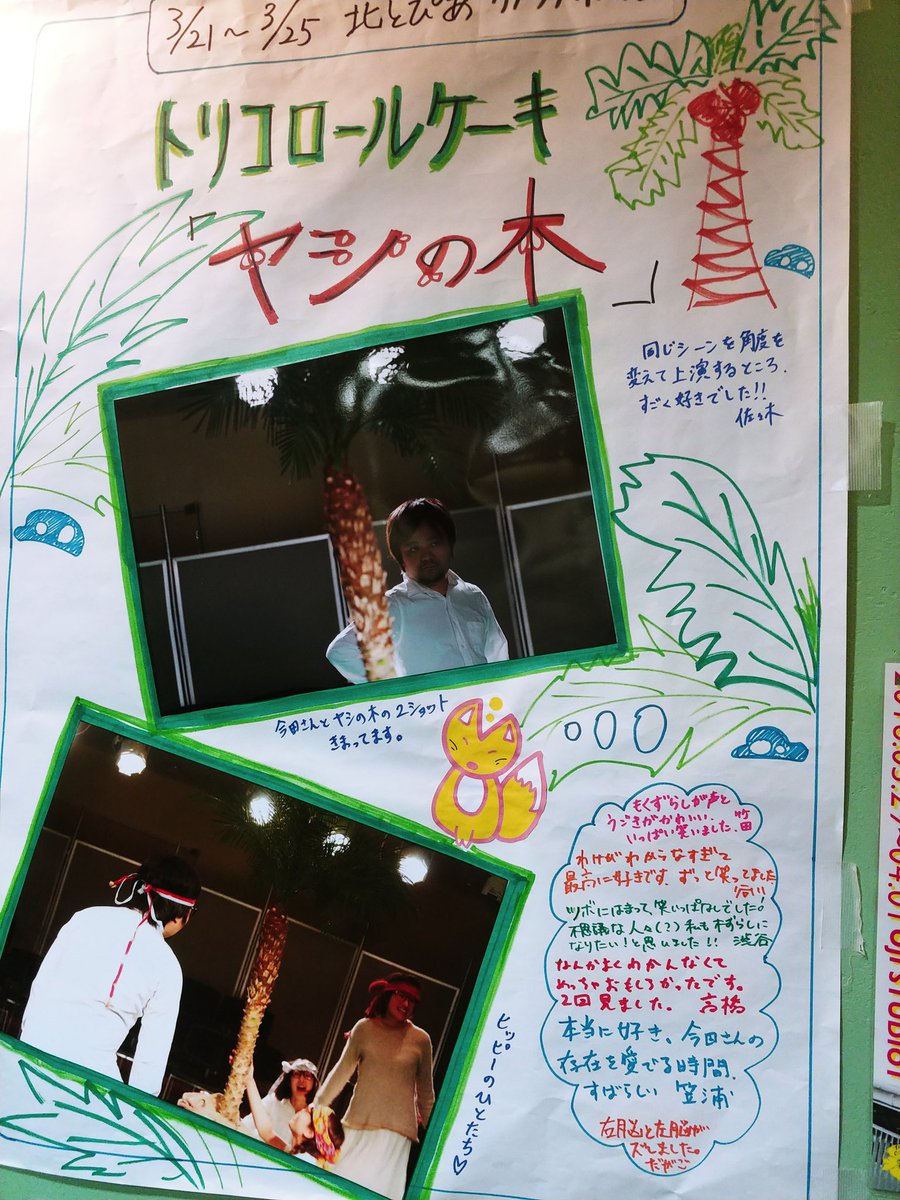 3/21～3/25 北とぴあ
トリコロールケーキ
「ヤシの木」
同じシーンを角度を
変えて上演するところ、
すごく好きでした!!
佐々木
今田さんとヤシの木の2ショット
きまってます。
ヒッピーのひとたち♡
もくずらしが声と
うごきがかわいい、
いっぱい笑いました。竹田
わけがわからなすぎて
最高に好きです。ずっと笑ってました
ツボにはまって、笑いっぱなしでした!
不思議な人々(?)私も木ずらしに
なりたい!と思いました!! 渋谷
なんかよくわかんなくて
めっちゃおもしろかったです。
2回見ました。高橋
本当に好き。今田さんの
存在を愛でる時間、
すばらしい 笠浦
右脳と左脳が
ズレました。
だがご